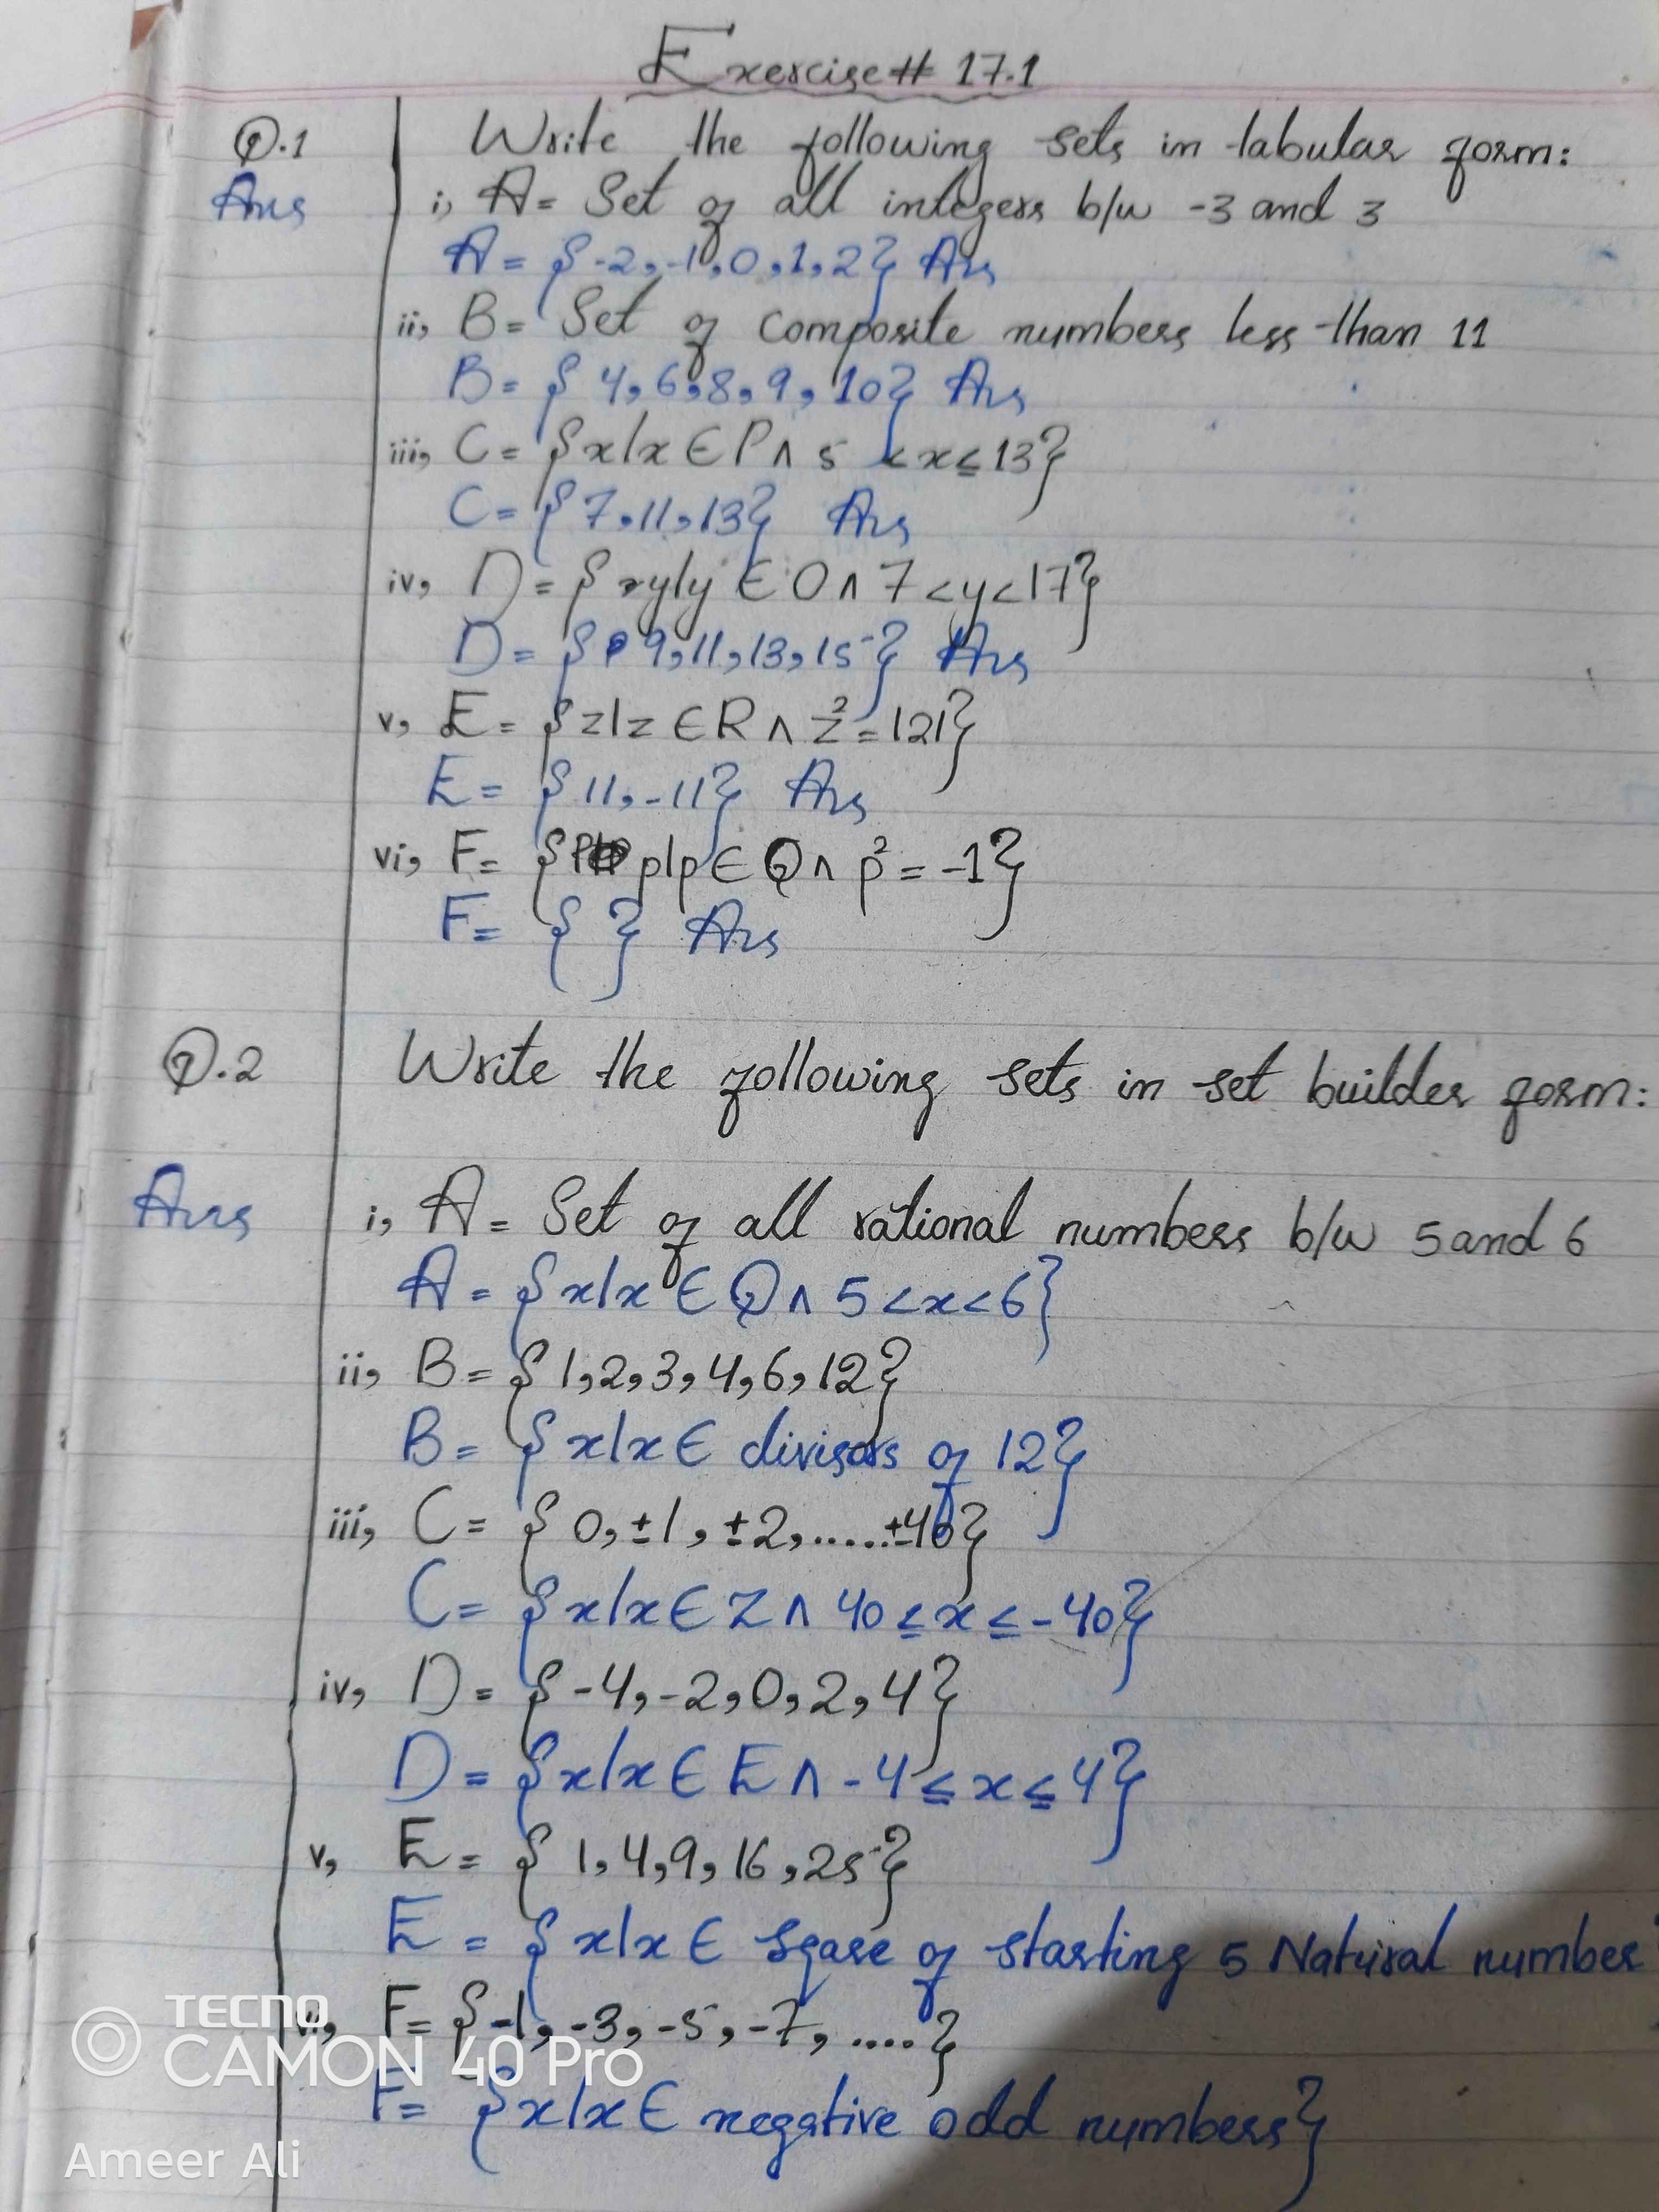 Exercise# 17.1
Q.1 Write the following sets in tabular form:
Ans i, A= Set of all integers b/w -3 and 3
A= {-2,-1,0,1,2} Ans
ii, B= Set of composite numbers less than 11
B= { 4,6,8,9,10} Ans
iii, C= {x|x ∈ P ∧ 5 < x ≤ 13}
C= {7,11,13} Ans
iv, D= {y|y ∈ O ∧ 7 < y < 17}
D= {9,11,13,15} Ans
v, E= {z|z ∈ R ∧ z²=121}
E= {11,-11} Ans
vi, F= {p|p ∈ Q ∧ p²= -1}
F= { } Ans
Q.2 Write the following sets in set builder form:
Ans i, A= Set of all rational numbers b/w 5 and 6
A= {x|x ∈ Q ∧ 5 < x < 6}
ii, B= {1,2,3,4,6,12}
B= {x|x ∈ divisors of 12}
iii, C= {0,±1,±2,.....±40}
C= {x|x ∈ Z ∧ 40 ≤ x ≤ -40}
iv, D= {-4,-2,0,2,4}
D= {x|x ∈ E ∧ -4 ≤ x ≤ 4}
v, E= {1,4,9,16,25}
E= {x|x ∈ Sqare of starting 5 Natural number
vi, F= {-1,-3,-5,-7,....}
F= {x|x ∈ negative odd numbers}
TECNO
CAMON 40 Pro
Ameer Ali